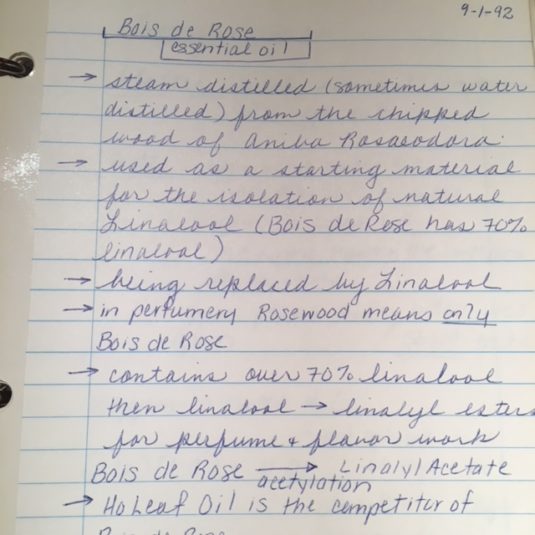 9-1-92
Bois de Rose
essential oil
→ steam distilled (sometimes water
distilled) from the chipped
wood of Aniba Rosaeodora.
→ used as a starting material
for the isolation of natural
Linalool (Bois de Rose has 70%
linalool)
→ being replaced by Linalool
→ in perfumery Rosewood means only
Bois de Rose
→ contains over 70% linalool
then linalool → linalyl esters
for perfume + flavor work
Bois de Rose → Linalyl Acetate
acetylation
→ Ho Leaf Oil is the competitor of
Bois de Rose